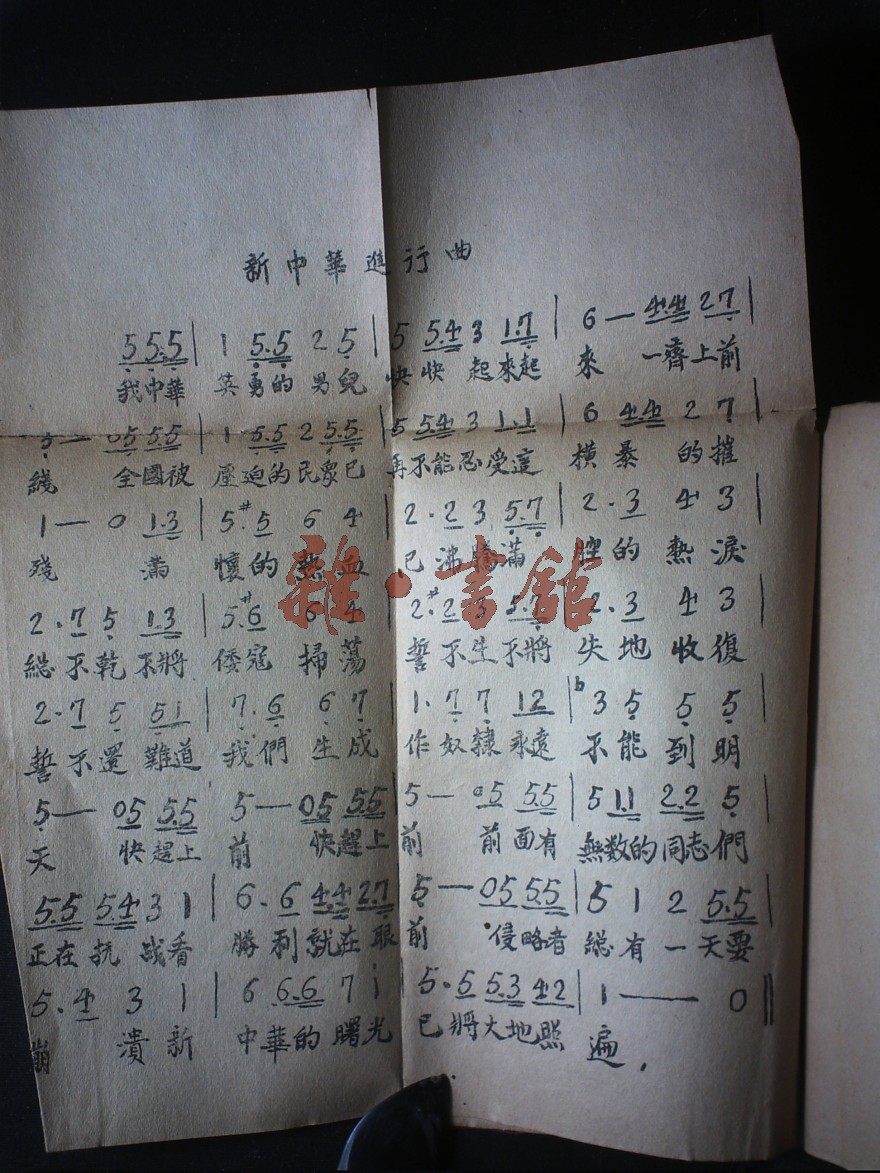 新中華進行曲
5 5.5 | 1 5.5 2 5 | 5 5.4 3 1.7 | 6 — 4.4 2 7 |
我中華 英勇的男兒 快快起來起 來 一齊上前
5 — 05 5.5 | 1 5.5 2 5.5 | 5 5.4 3 1.1 | 6 4.4 2 7 |
綫 全國被 壓迫的民衆已 再不能忍受這 橫暴的摧
1 — 0 1.3 | 5.#5 6 4 | 2.2 3 5.7 | 2.3 4 3 |
殘 滿 懷的熱血 已沸騰滿 腔的熱淚
2.7 5 1.3 | 5.6 6 4 | 2.#2 3 5.7 | 2.3 4 3 |
總不乾不將 倭寇掃蕩 誓不生不將 失地收復
2.7 5 5 1 | 7.6 6 7 | 1.7 7 1 2 | b3 5 5 5 |
誓不還難道 我們生成 作奴隸永遠 不能到明
5 — 05 5.5 | 5 — 05 5.5 | 5 — 05 5.5 | 5 1.1 2.2 5 |
天 快趕上 前 快趕上 前 前面有 無数的同志們
5.5 5.4 3 1 | 6.6 4.4 2.7 | 5 — 05 5.5 | 5 1 2 5.5 |
正在抗战看 勝利就在眼 前 侵略者 總有一天要
5.4 3 1 | 6 6.6 7 1 | 5.5 5.3 4 2 | 1 — 0 ||
崩潰新 中華的曙光 已將大地照 遍.
雜·書館